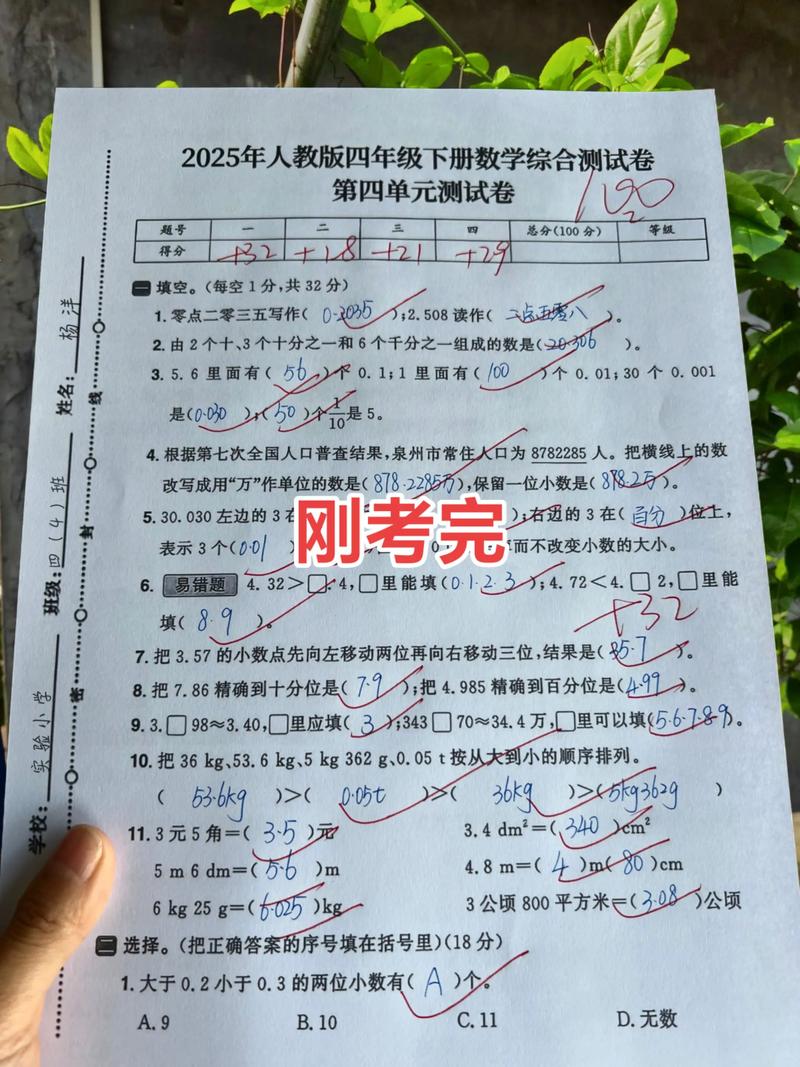 2025年人教版四年级下册数学综合测试卷
第四单元测试卷
100
题号 一 二 三 四 总分(100分) 等级
得分 +32 +18 +21 +29
一 填空。(每空1分,共32分)
1.零点二零三五写作( 0.2035 );2.508读作( 二点五零八 )。
2.由2个十、3个十分之一和6个千分之一组成的数是(20.306 )。
3. 5.6里面有( 56 )个0.1;1里面有( 100 )个0.01;30个0.001
是(0.030 );( 50 )个1/10是5。
4.根据第七次全国人口普查结果,泉州市常住人口为8782285人。把横线上的数
改写成用“万”作单位的数是( 878.2285万 ),保留一位小数是( 878.2万 )。
5. 30.030左边的3在
);右边的3在( 百分 )位上,
刚考完
表示3个(0.01 )
而不改变小数的大小。
6. 易错题 4.32>□.4,□里能填(0.1.2.3 );4.72<4.□2,□里能
填( 8.9 )。
+32
7.把3.57的小数点先向左移动两位再向右移动三位,结果是( 35.7 )。
8.把7.86精确到十分位是( 7.9 );把4.985精确到百分位是(4.99 )。
9. 3.□98≈3.40,□里应填( 3 );343□70≈34.4万,□里可以填(5.6.7.8.9)。
10.把36 kg、53.6 kg、5 kg 362 g、0.05 t按从大到小的顺序排列。
( 53.6kg )>( 0.05t )>( 36kg )>( 5kg362g )
11. 3元5角=( 3.5 )元 3.4 dm²=( 340 )cm²
5 m 6 dm=( 5.6 )m 4.8 m=( 4 )m( 80 )cm
6 kg 25 g=( 6.025 )kg 3公顷800平方米=( 3.08 )公顷
二 选择。(把正确答案的序号填在括号里)(18分)
1.大于0.2小于0.3的两位小数有( A )个。
A. 9 B. 10 C. 11 D. 无数
学校: 实验小学 班级: 四(4)班 姓名: 杨洋
密 封 线